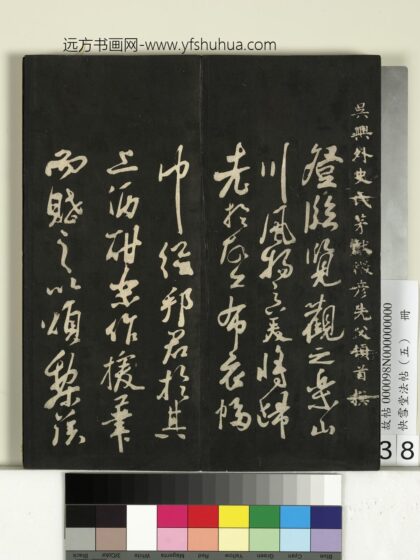 远方书画网-www.yfshuhua.com
吳興外史
茅
彥先父頓首撰
登臨覽觀之樂山
川風物之美將歸
老於故丘布衣幅
巾從邦君於其
上酒酣樂作援筆
而賦之以頌黎侯
故帖 000098N000000000
快雪堂法帖(五) 冊
3 8
Black
3/Color
White
Magenta
Red
Yellow
Green
Cyan
Blue